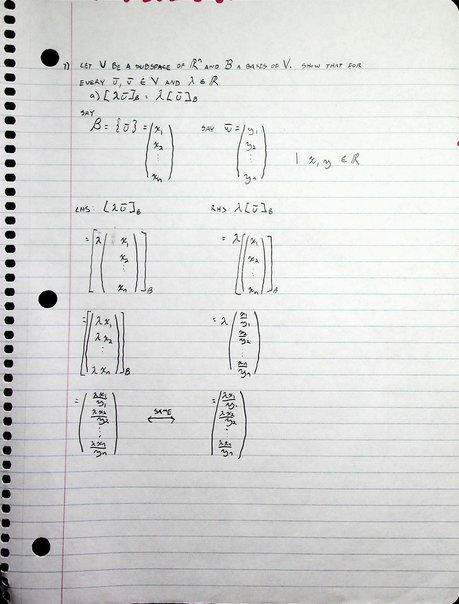 7) LET V BE A SUBSPACE OF ℝⁿ AND B A BASIS OF V. SHOW THAT FOR
EVERY ū, v̄ ∈ V AND λ ∈ ℝ
a) [λū]_B = λ[ū]_B
SAY
B = {ū} = (x₁ x₂ ⋮ xₙ) SAY w̄ = (y₁ y₂ ⋮ yₙ) | x, y ∈ ℝ
LHS: [λū]_B RHS: λ[ū]_B
= [λ(x₁ x₂ ⋮ xₙ)]_B = λ[(x₁ x₂ ⋮ xₙ)]_B
= [(λx₁ λx₂ ⋮ λxₙ)]_B = λ(x₁/y₁ x₂/y₂ ⋮ xₙ/yₙ)
= (λx₁/y₁ λx₂/y₂ ⋮ λxₙ/yₙ) SAME ⟷ = (λx₁/y₁ λx₂/y₂ ⋮ λxₙ/yₙ)